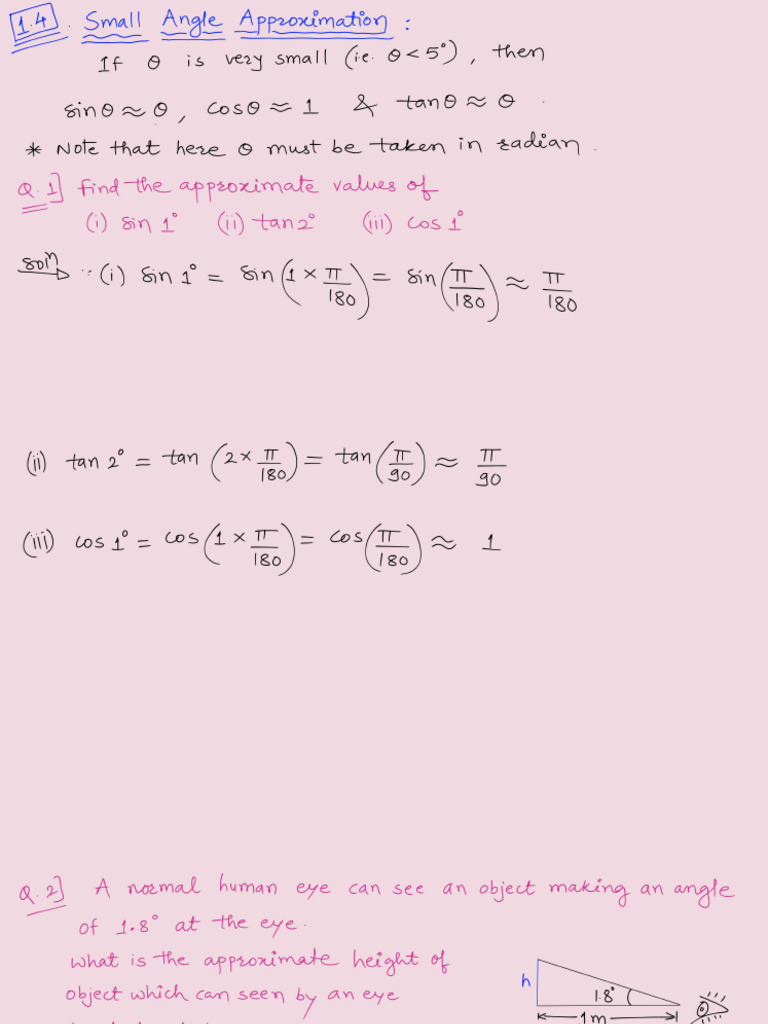 1.4. Small Angle Approximation :
If θ is very small (i.e. θ < 5°), then
sinθ ≈ θ, cosθ ≈ 1 & tanθ ≈ θ.
* Note that here θ must be taken in radian.
Q.1] find the approximate values of
(i) sin 1° (ii) tan 2° (iii) cos 1°
Soln :- (i) sin 1° = sin (1 × π/180) = sin (π/180) ≈ π/180
(ii) tan 2° = tan (2 × π/180) = tan (π/90) ≈ π/90
(iii) cos 1° = cos (1 × π/180) = cos (π/180) ≈ 1
Q.2] A normal human eye can see an object making an angle
of 1.8° at the eye.
what is the approximate height of
object which can seen by an eye
h
1.8°
1m